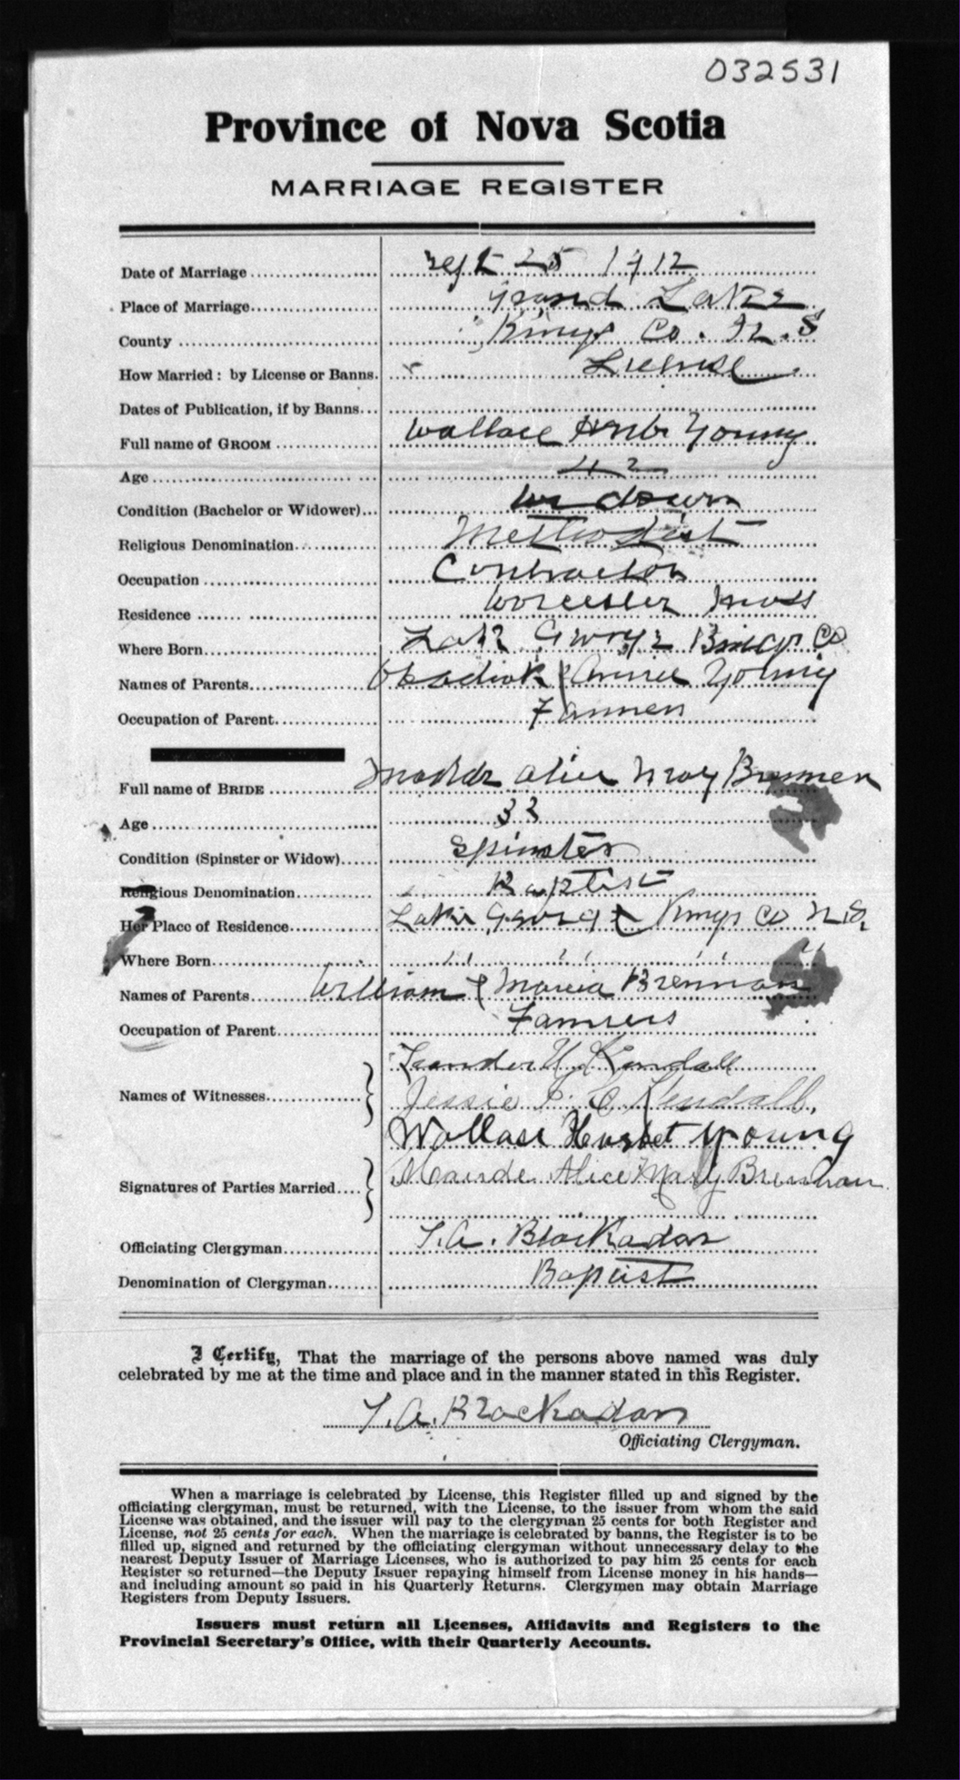 032531
Province of Nova Scotia
MARRIAGE REGISTER
Date of Marriage Sept 25 1912
Place of Marriage Grand Lake
County Kings Co. N.S
How Married: by License or Banns. License
Dates of Publication, if by Banns
Full name of GROOM Wallace Young
Age 42
Condition (Bachelor or Widower)
Religious Denomination Methodist
Occupation Contractor
Residence Worcester Mass
Where Born Lake George Kings Co
Names of Parents Obadiah & Annie Young
Occupation of Parent Farmer
Full name of BRIDE Alice May Brennen
Age 33
Condition (Spinster or Widow) Spinster
Religious Denomination Baptist
Her Place of Residence Lake George Kings Co N.S.
Where Born " " " "
Names of Parents William & Maria Brennan
Occupation of Parent Farmers
Leander Kendall
Names of Witnesses Jessie Kendall,
Wallace Herbert Young
Signatures of Parties Married Maude Alice Mary Brennan
Officiating Clergyman Blackadar
Denomination of Clergyman Baptist
I Certify, That the marriage of the persons above named was duly
celebrated by me at the time and place and in the manner stated in this Register.
Blackadar
Officiating Clergyman.
When a marriage is celebrated by License, this Register filled up and signed by the
officiating clergyman, must be returned, with the License, to the issuer from whom the said
License was obtained, and the issuer will pay to the clergyman 25 cents for both Register and
License, not 25 cents for each. When the marriage is celebrated by banns, the Register is to be
filled up, signed and returned by the officiating clergyman without unnecessary delay to the
nearest Deputy Issuer of Marriage Licenses, who is authorized to pay him 25 cents for each
Register so returned—the Deputy Issuer repaying himself from License money in his hands—
and including amount so paid in his Quarterly Returns. Clergymen may obtain Marriage
Registers from Deputy Issuers.
Issuers must return all Licenses, Affidavits and Registers to the
Provincial Secretary's Office, with their Quarterly Accounts.